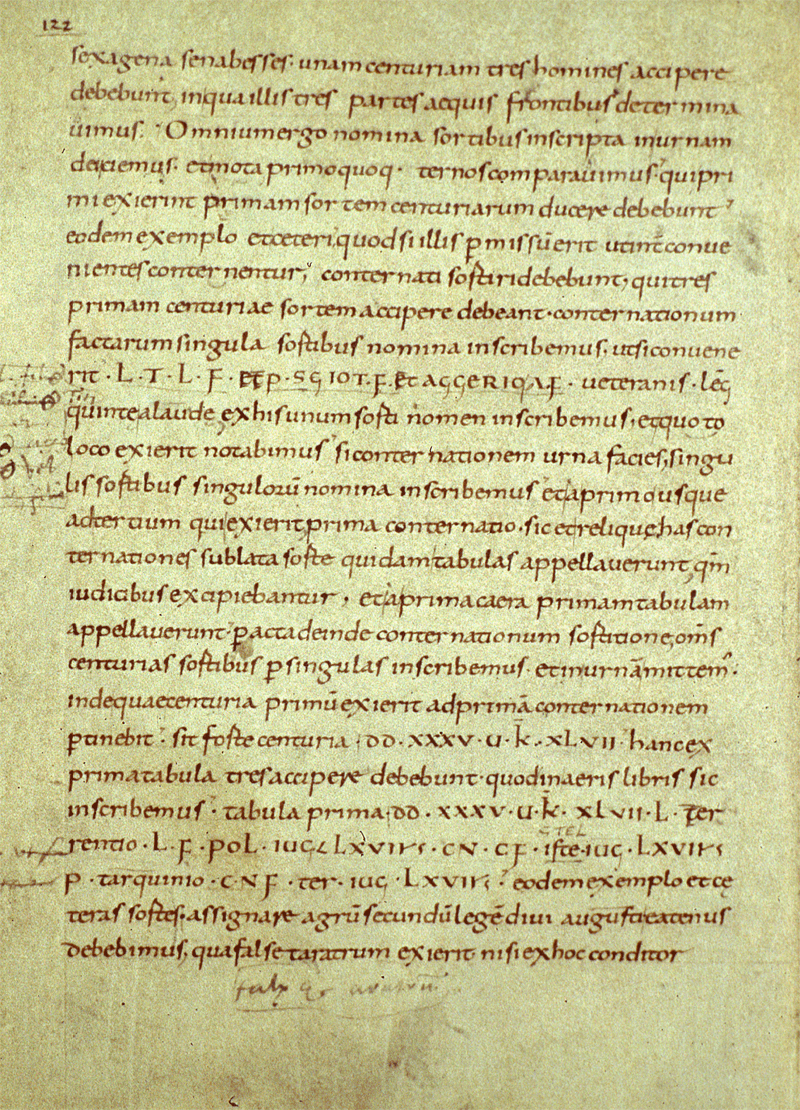 122
sexagena senabesses· unamcenturiam treshomines accipere
debebunt inquaillistres partesacquis frontibusdetermina
uimus· Omniumergo nomina sortibusinscripta inurnam
deiciemus· etnotaprimoquoq· ternoscomparauimus·quipri
miexierint primamsortemcenturiarum ducere debebunt
eodemexemplo etceteri,quodsiillis pmissūerit utint̄conue
nientesconternentur, conternati sortiridebebunt,quitres
primam centuriae sortemaccipere debeant·conternationum
factarumsingula sortibus nomina inscribemus,utsiconuene
rit·L·T·L·F· etp·SGIOT·F·Et AGGERIQAF· ueteranis·leg
quintealaude exhisunumsorti nomen inscribemus,etquoto
loco exierit notabimus siconternationem urna facies,singu
lissortibus singulorū nomina inscribemus etaprimousque
adtertium quiexierit,prima conternatio·sicetreliquę,hascon
ternationes sublata sorte quidamtabulas appellauerunt,qm̄
iudicibusexcipiebantur, etaprimacaera primamtabulam
appellauerunt pactadeinde conternationum sortitione,om̄s
centurias sortibus psingulas inscribemus·etinurnāmittem·
indequaecenturia primūexierit adprimā conternationem
ptinebit· sit forte centuria·DD·XXXV·U·k̄·XLVII hancex
primatabula tresaccipere debebunt·quodinaeris libris sic
inscribemus· tabula prima·DD·XXXV·U·k̄· XLVII·L·Ter
rentio·L·F·POL· IUG LXVI ·CN·CF· iste·IUG·LXVI
STEL
P·tarquinio·CNF·ter·IUG·LXVI · eodemexemploetcę
teras sortes·assignare agrūsecundūlegē diui augusti,eatenus
debebimus,quafalsetaratrum exierit· nisiexhocconditor
falx